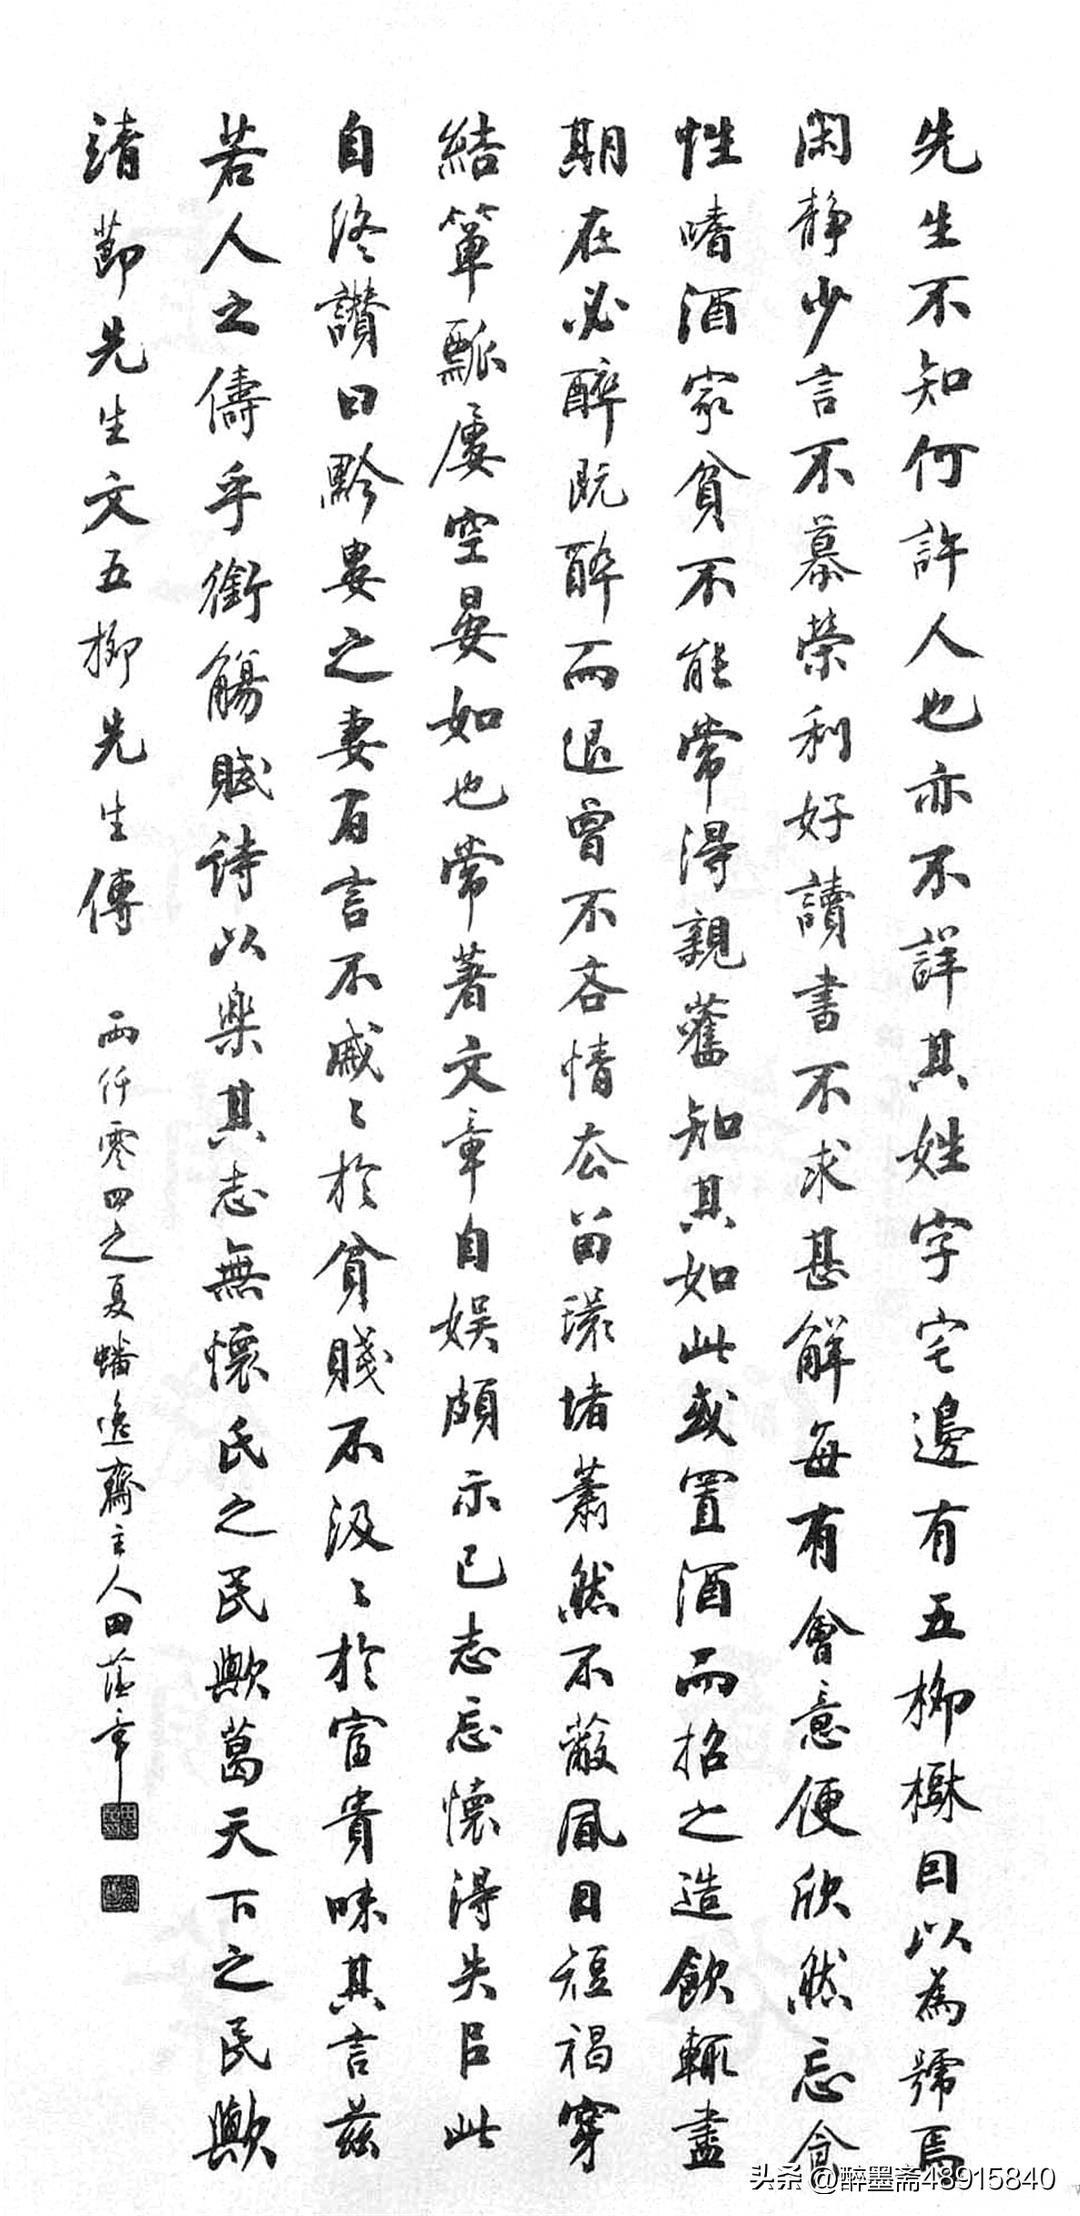 先生不知何許人也亦不詳其姓字宅邊有五柳樹因以為號焉
閑靜少言不慕榮利好讀書不求甚解每有會意便欣然忘食
性嗜酒家貧不能常得親舊知其如此或置酒而招之造飲輒盡
期在必醉既醉而退曾不吝情去留環堵蕭然不蔽風日短褐穿
結簞瓢屢空晏如也常著文章自娛頗示己志忘懷得失以此
自終讚曰黔婁之妻有言不戚〻於貧賤不汲〻於富貴味其言茲
若人之儔乎銜觴賦詩以樂其志無懷氏之民歟葛天下之民歟
清節先生文五柳先生傳
兩仟零四之夏蟠逸齋主人田蘊章
头条 @醉墨斋48915840